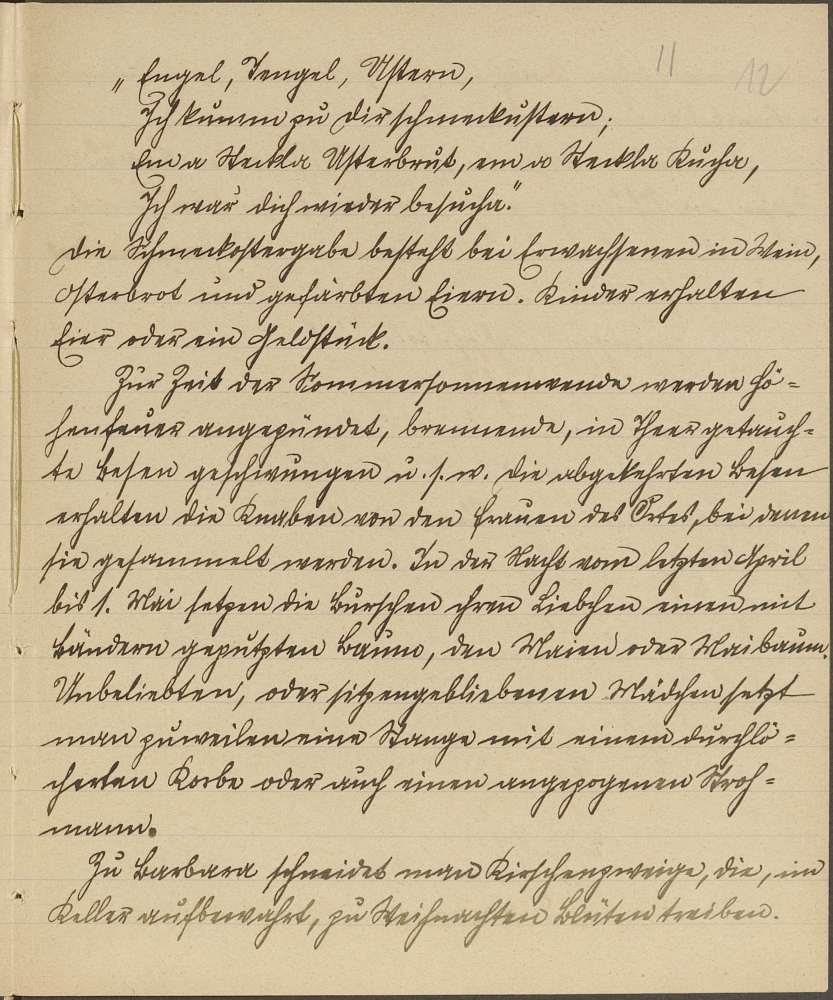 11 12
„Engel, Tengel, Ustern,
Ich kumm zu dir schmeckustern;
Em a Steckla Usterbrut, em a Steckla Kucha,
Ich war' dich wieder besucha."
Die Schmeckostergabe besteht bei Erwachsenen in Wein,
Osterbrot und gefärbten Eiern. Kinder erhalten
Eier oder ein Geldstück.
Zur Zeit der Sommersonnenwende werden Hö=
henfeuer angezündet, brennende, in Theer getauch=
te Besen geschwungen u.s.w. Die abgekehrten Besen
erhalten die Knaben von den Frauen des Ortes, bei denen
sie gesammelt werden. In der Nacht vom letzten April
bis 1. Mai setzen die Burschen ihren Liebchen einen mit
Bändern geputzten Baum, den Maien oder Maibaum.
Unbeliebten, oder sitzengebliebenen Mädchen setzt
man zuweilen eine Stange mit einem durchlö=
cherten Korbe oder auch einen angezogenen Stroh=
mann.
Zu Barbara schneidet man Kirschenzweige, die, im
Keller aufbewahrt, zu Weihnachten Blüten treiben.